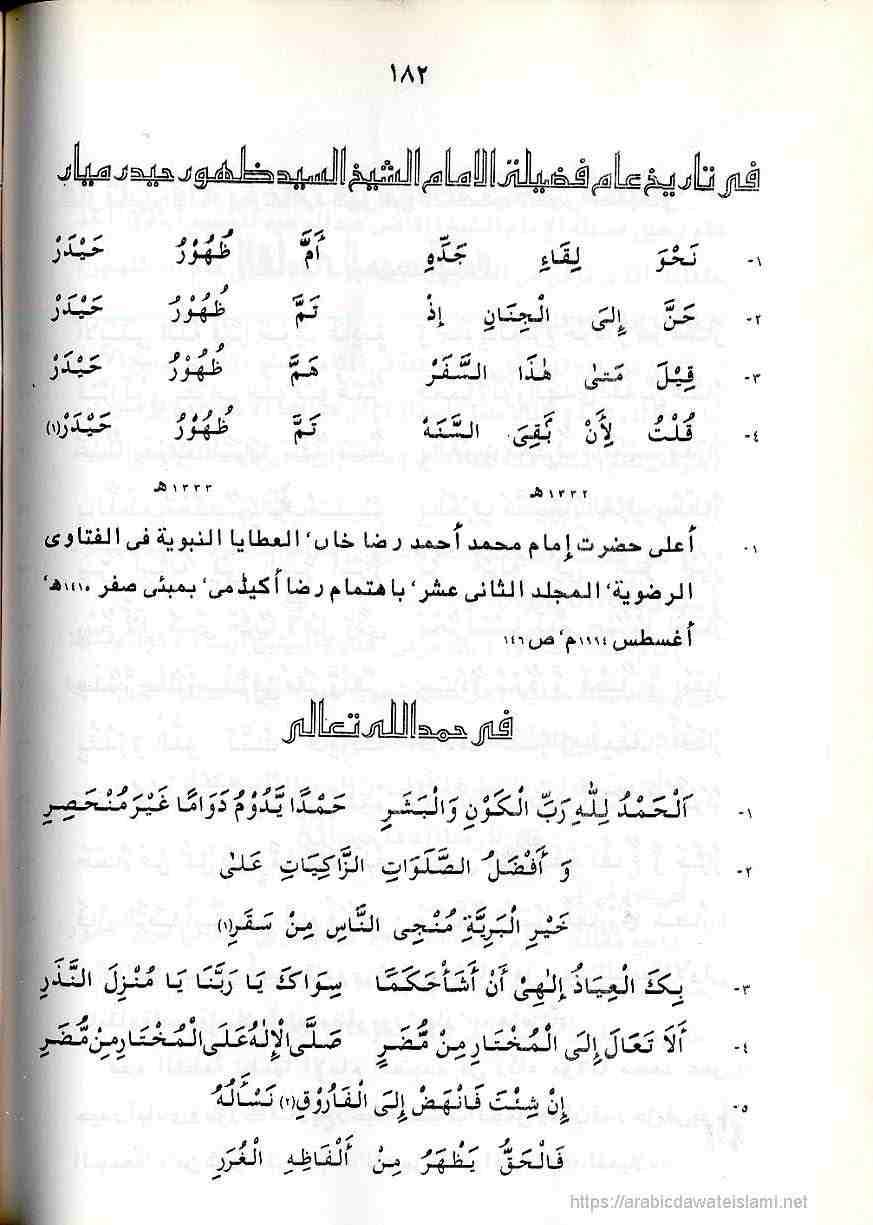 ١٨٢
في تاريخ عام فضيلة الامام الشيخ السيد ظهور حيدر ميار
١- نَحْوَ لِقَاءِ جَدِّهِ أَمَّ ظُهُوْرُ حَيْدَرْ
٢- حَنَّ إِلَى الْجِنَانِ إِذْ تَمَّ ظُهُوْرُ حَيْدَرْ
٣- قِيْلَ مَتىٰ هٰذَا السَّفَرْ هَمَّ ظُهُوْرُ حَيْدَرْ
٤- قُلْتُ لِأَنْ بَقِىَ السَّنَهْ تَمَّ ظُهُوْرُ حَيْدَرْ(١)
١٣٣٢ھ ١٣٣٣ھ
١- أعلى حضرت إمام محمد أحمد رضا خاں، العطايا النبوية فى الفتاوى
الرضوية، المجلد الثانى عشر، باهتمام رضا أكيڈمى، بمبئى صفر ١٤١٥ھ،
أغسطس ١٩٩٤م، ص ١٤٦
في حمد الله تعالى
١- اَلْحَمْدُ لِلّٰهِ رَبِّ الْكَوْنِ وَالْبَشَرِ حَمْدًا يَّدُوْمُ دَوَامًا غَيْرَ مُنْحَصِرِ
٢- وَ أَفْضَلُ الصَّلَوَاتِ الزَّاكِيَاتِ عَلىٰ
خَيْرِ الْبَرِيَّةِ مُنْجِى النَّاسِ مِنْ سَقَرِ(١)
٣- بِكَ الْعِيَاذُ إِلٰهِىْ أَنْ أَشَأْحَكَمًا سِوَاكَ يَا رَبَّنَا يَا مُنْزِلَ النَّذَرِ
٤- أَلَا تَعَالَ إِلَى الْمُخْتَارِ مِنْ مُّضَرٍ صَلَّى الْإِلٰهُ عَلَى الْمُخْتَارِ مِنْ مُّضَرِ
٥- إِنْ شِئْتَ فَانْهَضْ إِلَى الْفَارُوْقِ(٢) نَسْأَلُهُ
فَالْحَقُّ يَظْهَرُ مِنْ أَلْفَاظِهِ الْغُرَرِ
https://arabicdawateislami.net